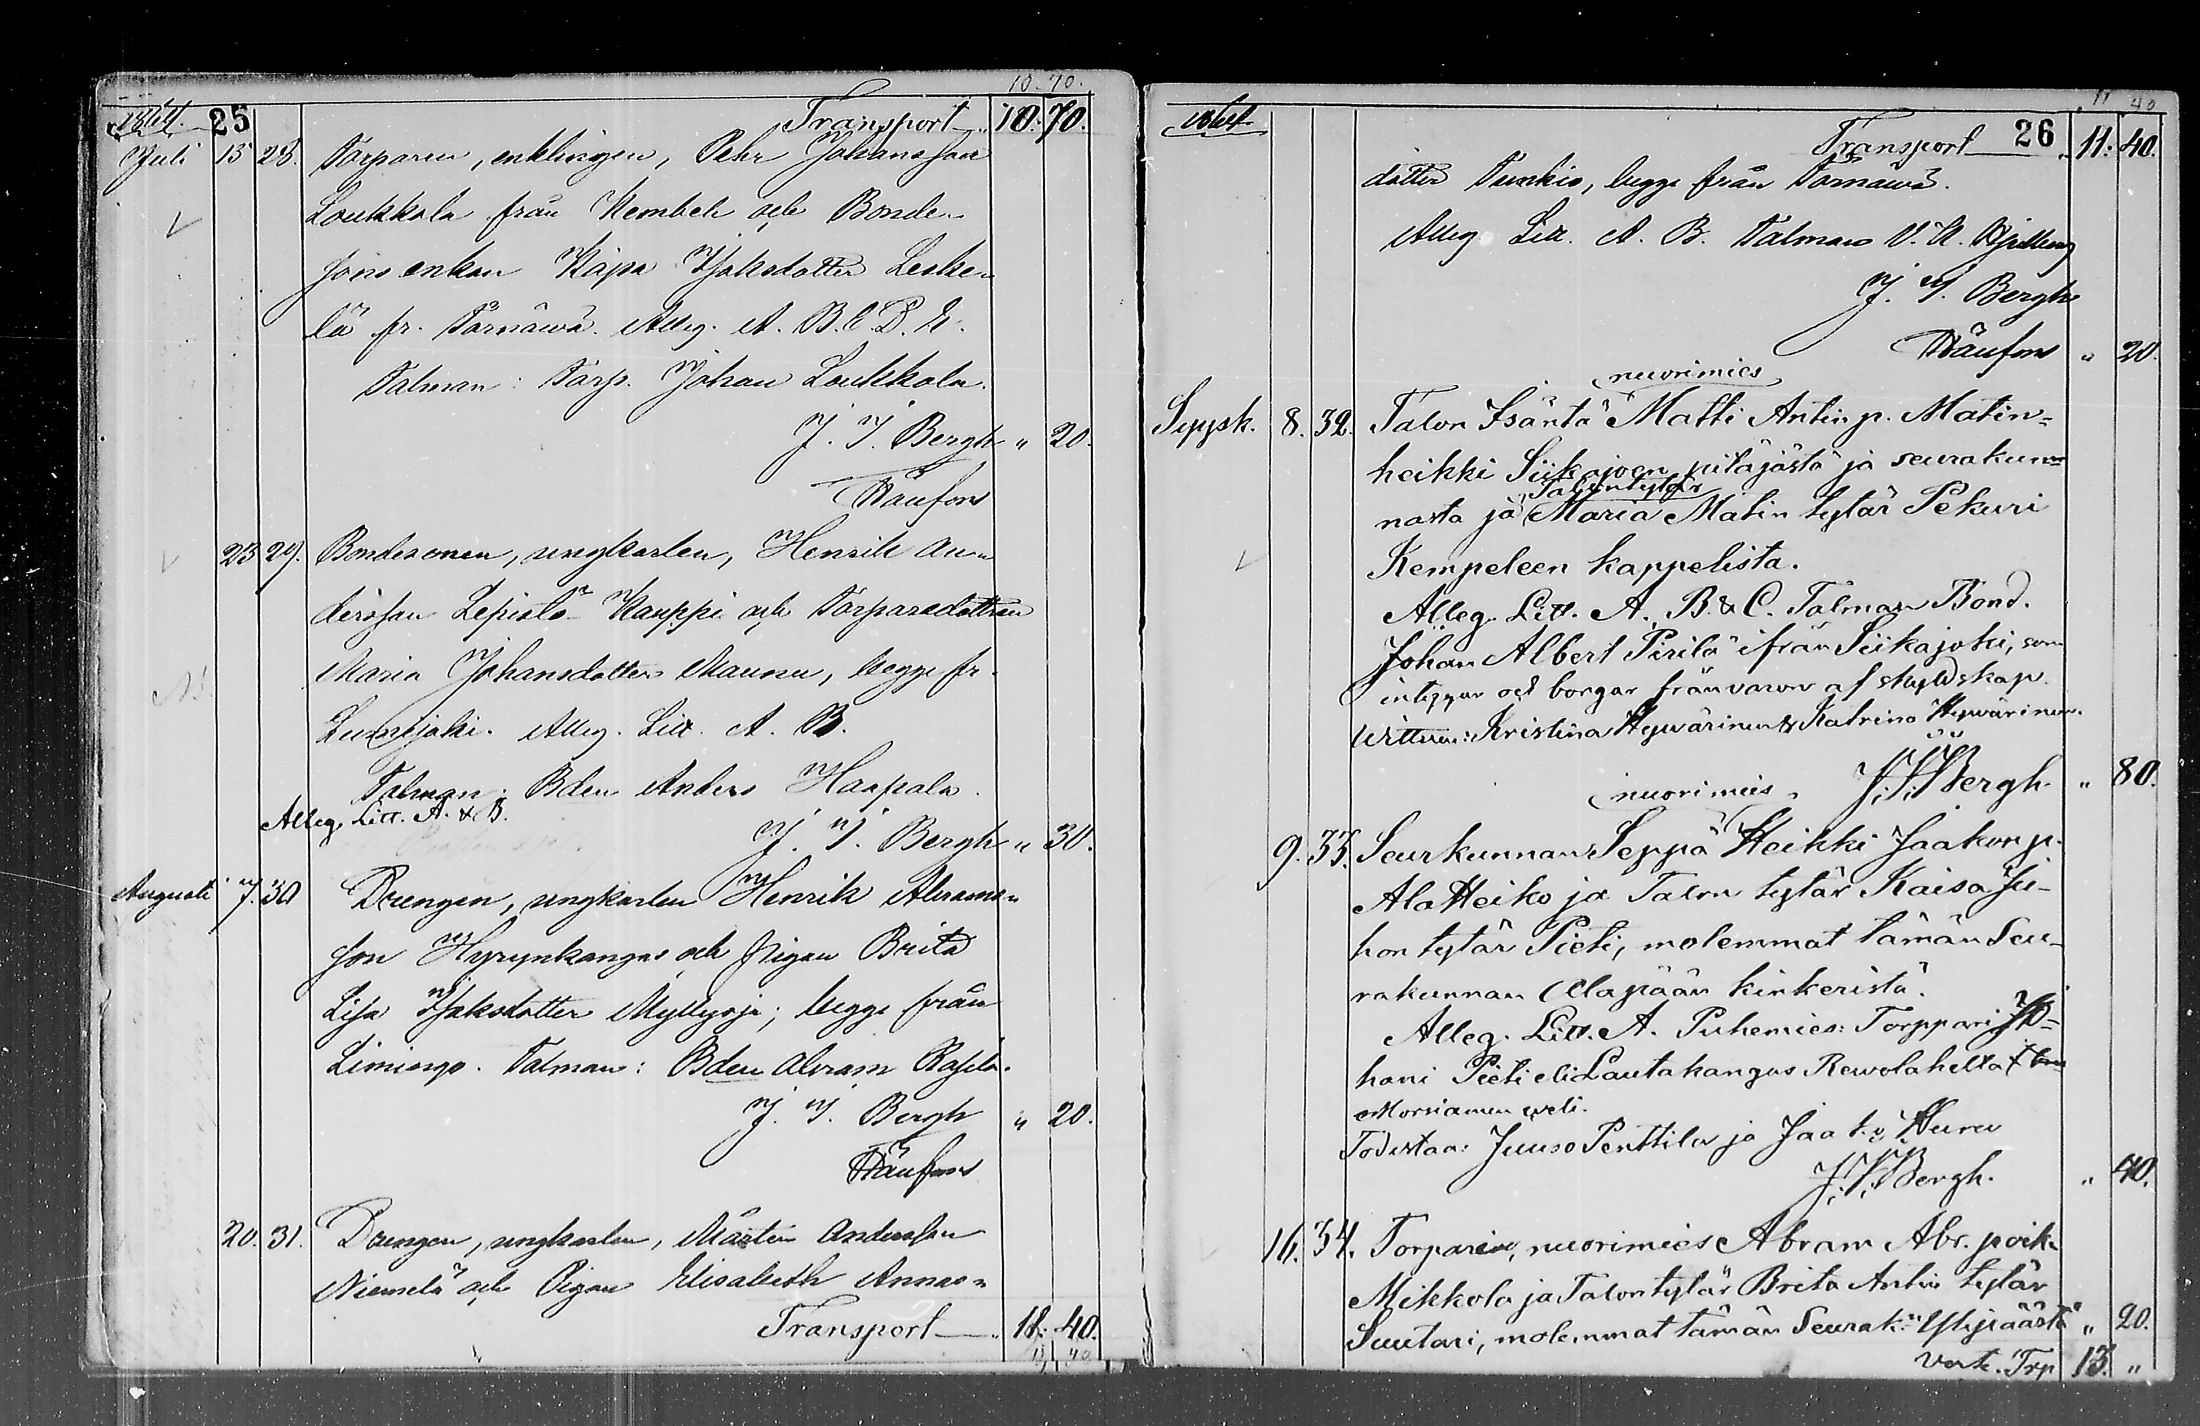 10. 70.
1864. 25 Transport 10. 70.
Juli 15 28. Torparen, enklingen, Pehr Johansson
Loukkola från Kembele och Bonde-
sons enkan Kajsa Isaksdotter Leske-
lä fr. Törnäwä. Alleg. A. B. C. D. E.
Talman: Torp. Johan Loukkola.
J. I. Bergh " 20.
23 29. Bondesonen, ungkarlen, Henrik An-
dersson Lepistö-Kauppi och Torparedottren
Maria Johansdotter Maunu, begge fr.
Lumijoki. Alleg. Litt. A. B.
Talman: Bden Anders Haapala.
Alleg. Litt. A. & B.
J. I. Bergh " 30.
Augusti 7. 30 Drengen, ungkarlen Henrik Abrams-
son Hyrynkangas och Pigan Brita
Lisa Isaksdotter Myllyoja; begge från
Limingo. Talman: Bden Abram
J. I. Bergh " 20.
20. 31. Drengen, ungkarlen, Mårten Andersson
Niemelä och Pigan Elisabeth Annas-
Transport 11. 40.
11 40
11 40
1864 Transport 26 11. 40.
dotter Tunkio, begge från Tornäwä.
Alleg. Litt. A. B. Talman
J. I. Bergh
" 20.
nuorimies
Syysk. 8. 32. Talon Isäntä Matti Antin p. Matin-
heikki Siikajoen pitäjästä ja seurakun-
Talontytär
nasta ja Maria Matin tytär Pekuri
Kempeleen kappelista.
Alleg. Litt. A. B. & C. Talman Bond.
Johan Albert Pirilä ifrån Siikajoki, som
intygar och borgar frånvaron af skyldskap.
Wittnen: Kristina Hywärinen & Katrina Hywärinen.
J. I. Bergh. " 80.
nuorimies
9. 33. Seurkunnan Seppä Heikki Jaakon p.
AlaHeiko ja Talon tytär Kaisa Ju-
hon tytär Pieti, molemmat tämän Seu-
rakunnan Alapään kinkeristä.
Alleg. Litt. A. Puhemies: Torppari Jo-
hani Pieti eli Lautakangas Rewolahelta
Morsiamen weli.
Todistaa: Juuso Penttila ja Jaako Huru
J. I. Bergh. " 40.
16. 34. Torparin, nuorimies Abram Abr. poik.
Mikkola ja Talontytär Brita Antin tytär
Suutari, molemmat tämän Seurak: Ylipäästä " 20.
Trp 13. "